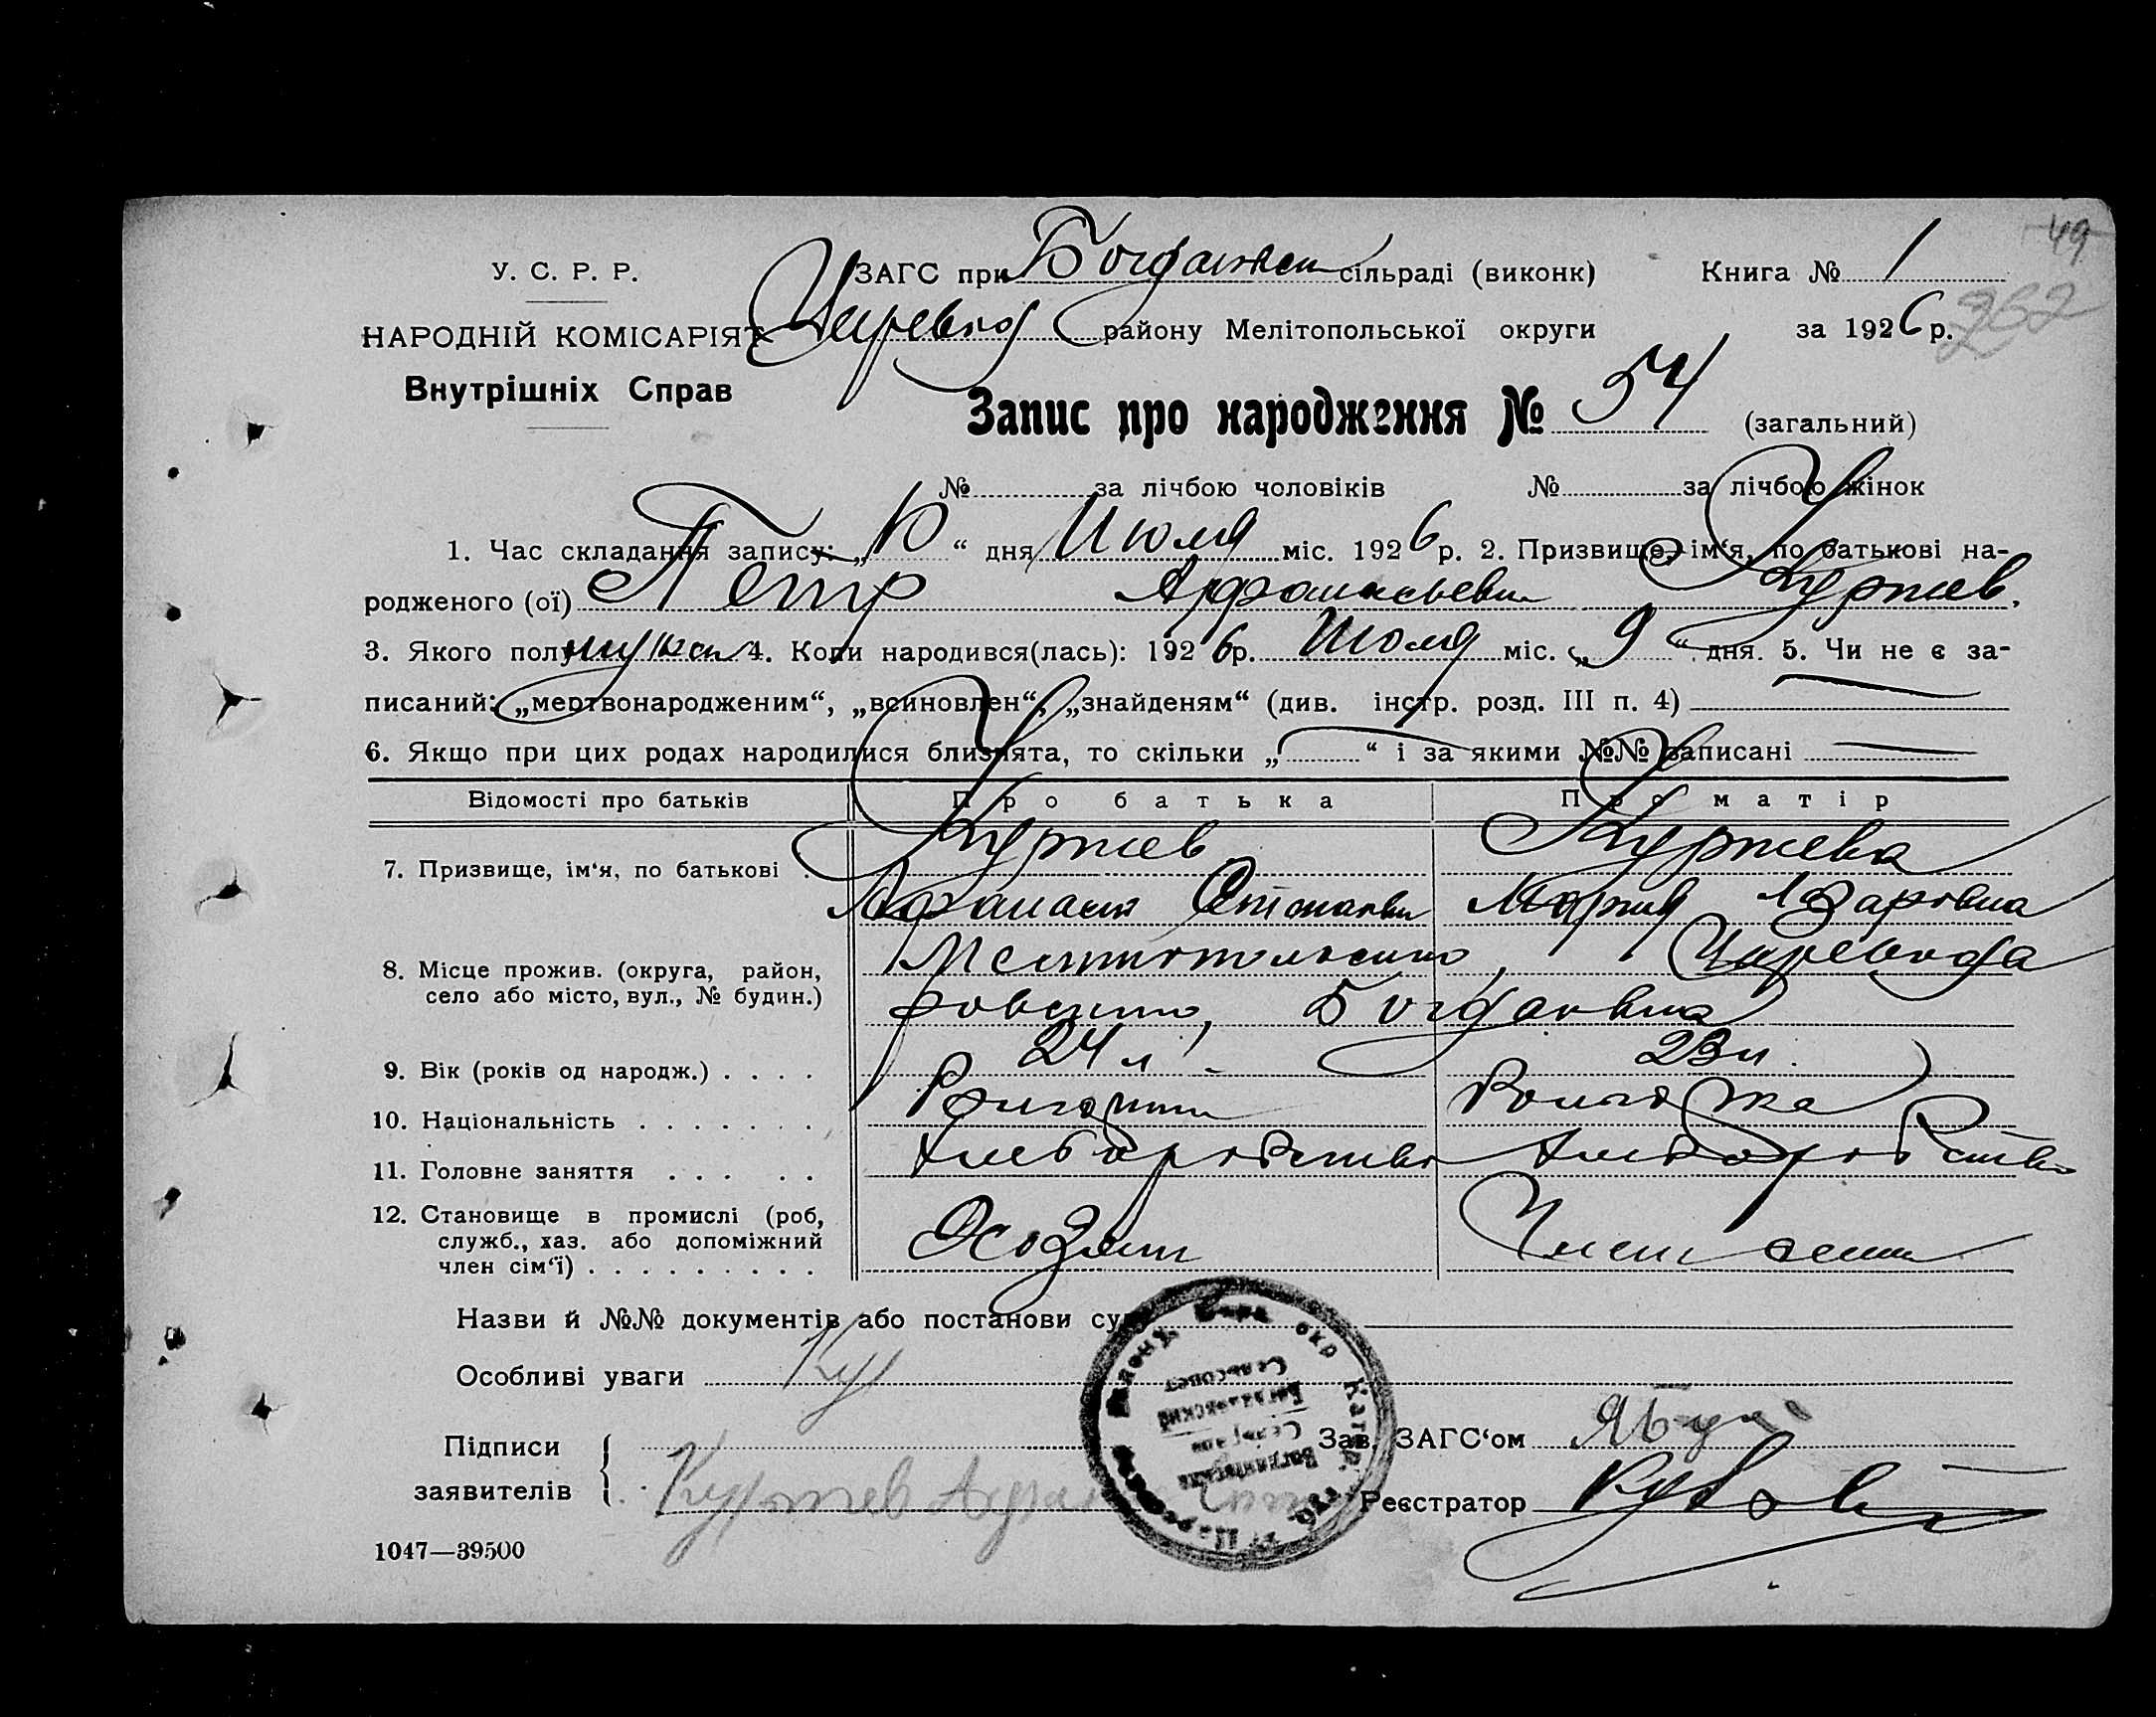 49
У. С. Р. Р. ЗАГС при Богдановск сільраді (виконк) Книга № 1
НАРОДНІЙ КОМІСАРІЯТ Царевкод району Мелітопольської округи за 1926 р. 262
Внутрішніх Справ
Запис про народження № 54 (загальний)
№ за лічбою чоловіків № за лічбою жінок
1. Час складання запису: „10“ дня Июля міс. 1926 р. 2. Призвище, ім‘я, по батькові на-
родженого (ої) Петр Афанасьевич Куртев.
3. Якого полу мужск 4. Коли народився(лась): 1926 р. Июля міс. „9“ дня. 5. Чи не є за-
писаний: „мертвонародженим“, „всиновлен“, „знайденям“ (див. інстр. розд. III п. 4)
6. Якщо при цих родах народилися близнята, то скільки „ “ і за якими №№ записані
Відомості про батьків Про батька Про матір
Куртев Куртева
7. Призвище, ім‘я, по батькові .
Афанасий Мария Лазаровна
8. Місце прожив. (округа, район, Мелитопольского, Царевода
село або місто, вул., № будин.) ровского, Богдановка
9. Вік (років од народж.) . . . . 24 л. 23 л.
10. Національність . . . . . . .
11. Головне заняття . . . . . Хлеборобство Хлеборобство
12. Становище в промислі (роб,
служб., хаз. або допоміжний Хозяин Член семи
член сім‘ї) . . . . . . . . .
Назви й №№ документів або постанови
Особливі уваги Ку
Підписи Зав. ЗАГС‘ом
заявителів Куртев Реєстратор
1047—39500